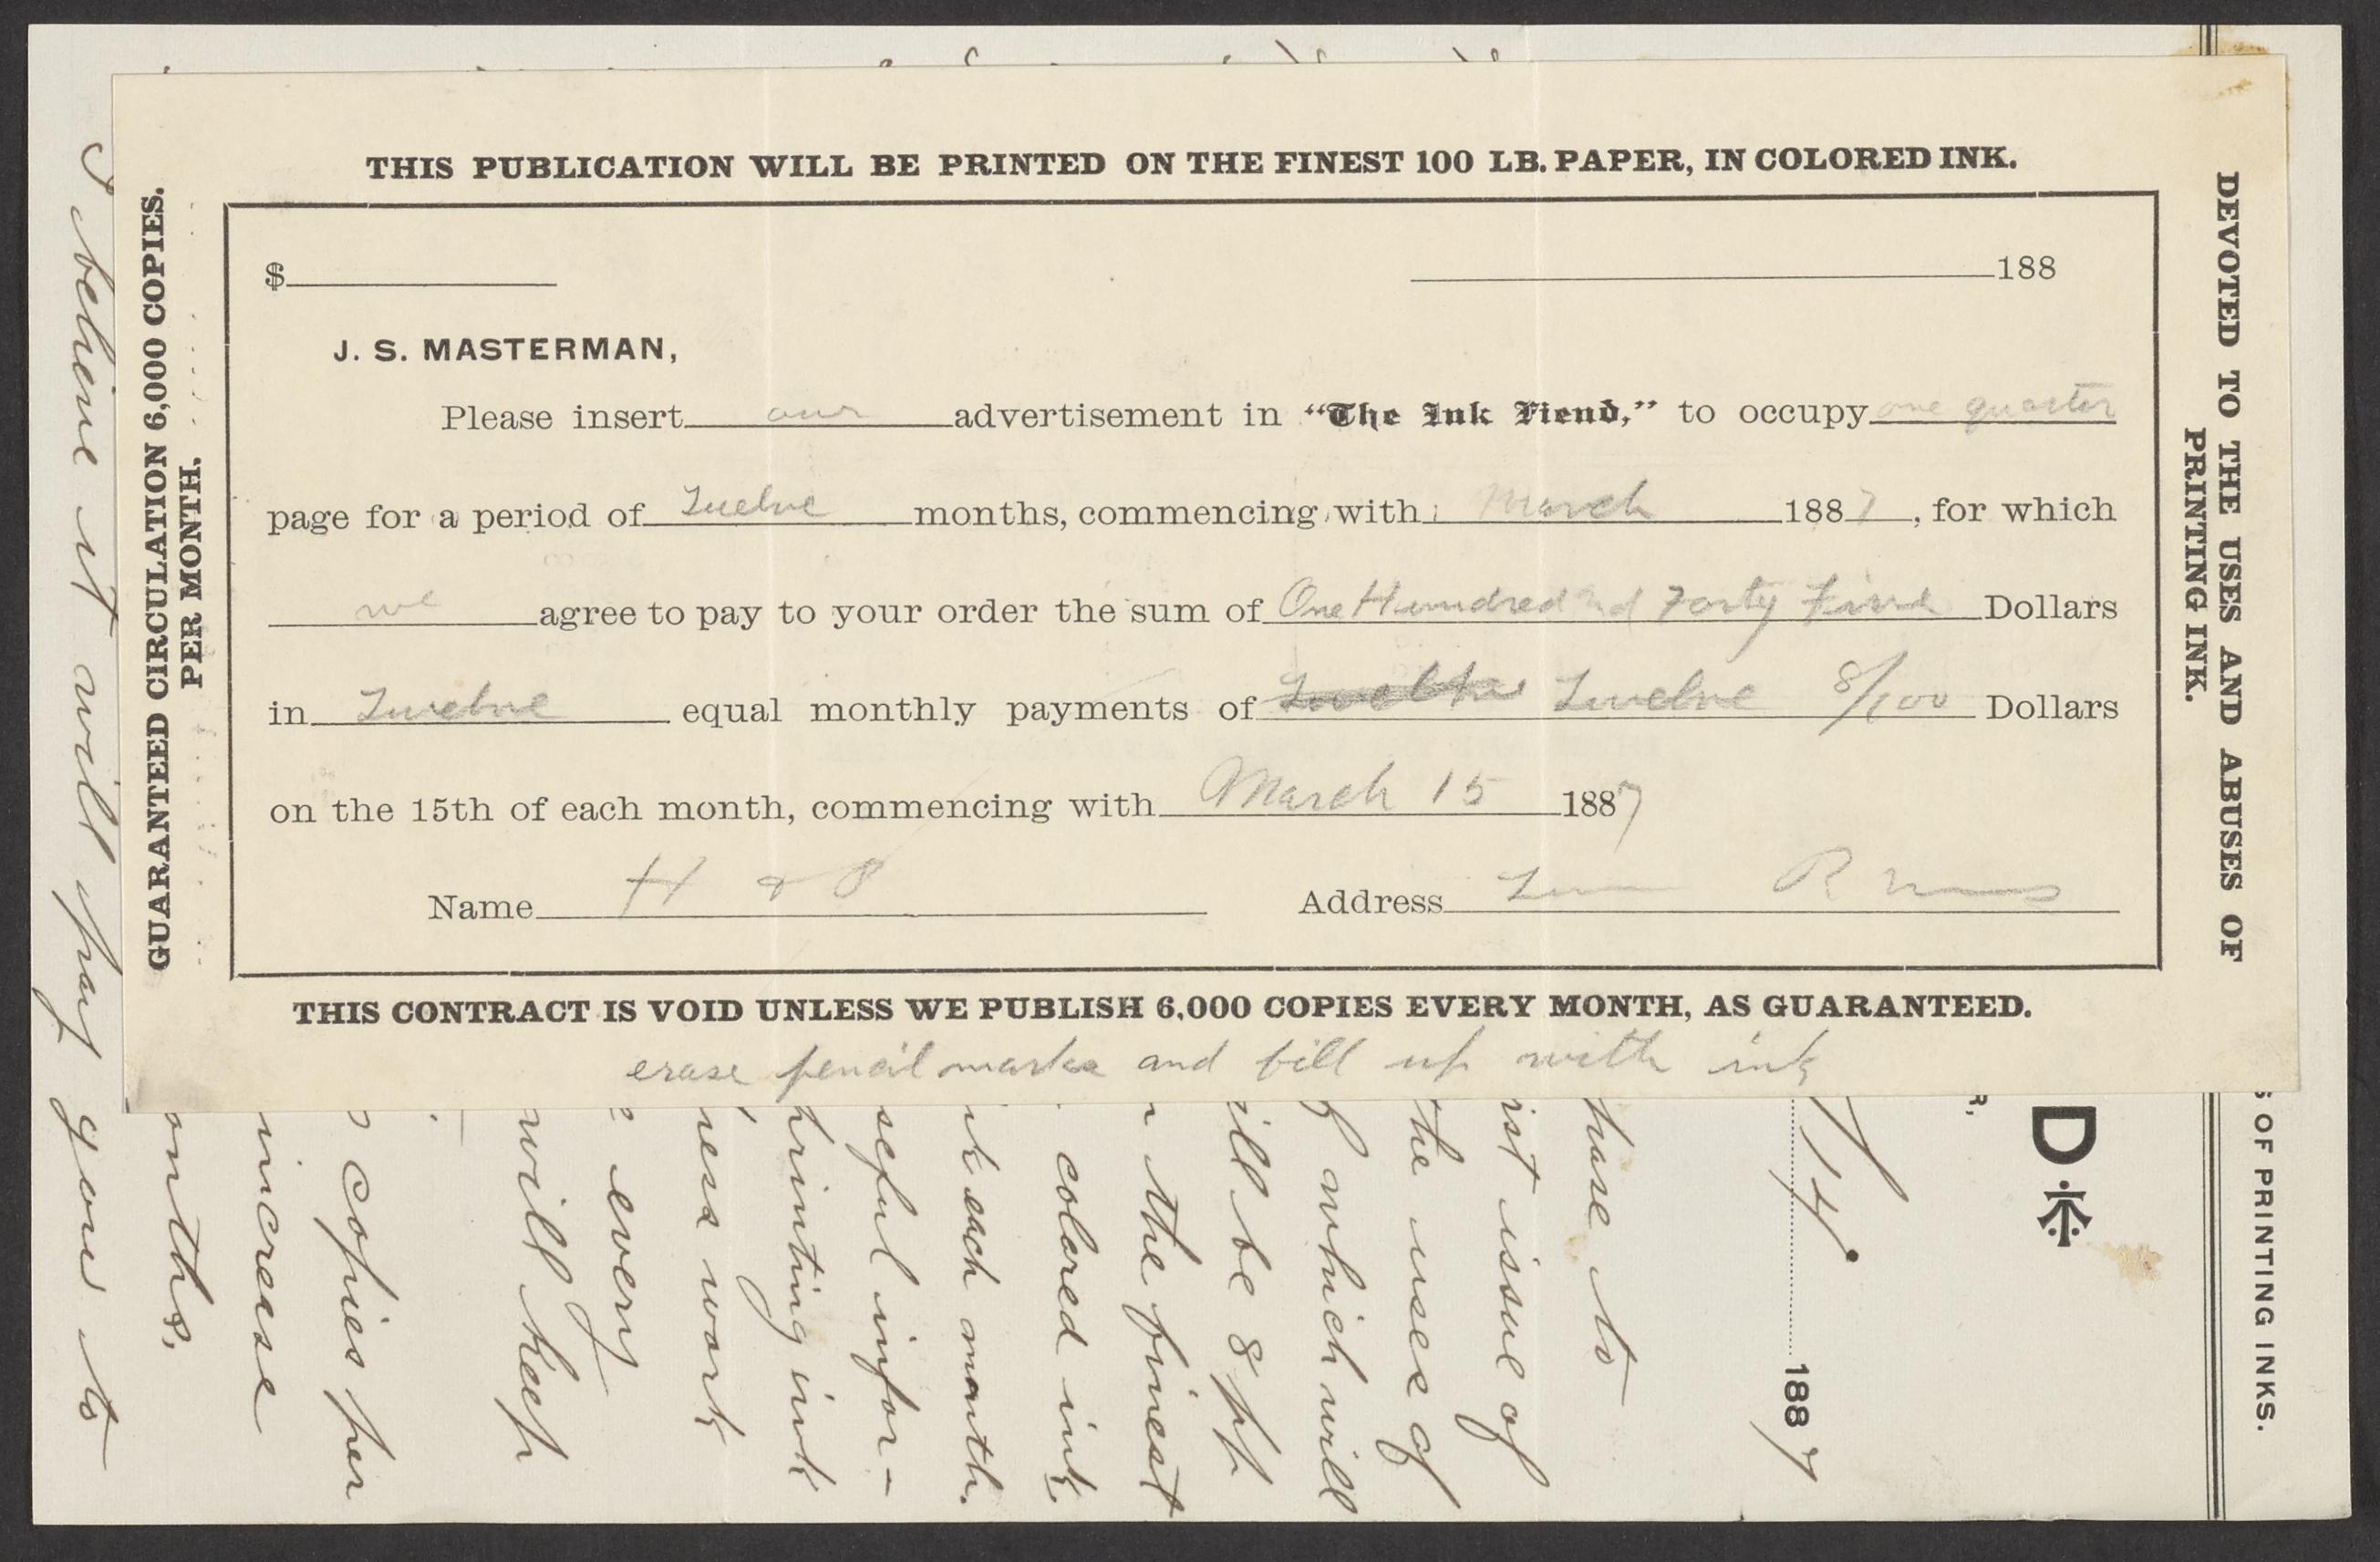 THIS PUBLICATION WILL BE PRINTED ON THE FINEST 100 LB. PAPER, IN COLORED INK.
GUARANTEED CIRCULATION 6,000 COPIES.
PER MONTH.
DEVOTED TO THE USES AND ABUSES OF
PRINTING INK.
$ 188
J. S. MASTERMAN,
Please insert our advertisement in “The Ink Fiend,” to occupy one quarter
page for a period of Twelve months, commencing with March 1887, for which
we agree to pay to your order the sum of One Hundred and Forty Five Dollars
in Twelve equal monthly payments of Twelve 8/100 Dollars
on the 15th of each month, commencing with March 15 1887
Name H & P Address
THIS CONTRACT IS VOID UNLESS WE PUBLISH 6,000 COPIES EVERY MONTH, AS GUARANTEED.
erase pencil marks and fill up with ink
S OF PRINTING INKS.
D
R,
14. 1887
hase to
ist issue of
the uses of
f which will
ill be 8 pp
n the finest
colored ink.
k each month.
seful infor-
printing ink
ness work
every
will keep
copies per
increase
onths,
I believe it will pay you to